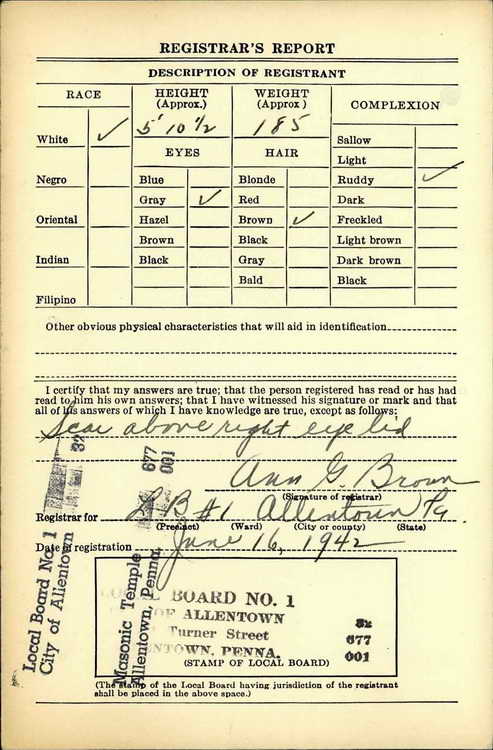 REGISTRAR'S REPORT
DESCRIPTION OF REGISTRANT
RACE
HEIGHT (Approx.)
WEIGHT (Approx)
COMPLEXION
5' 10 1/2
185
White ✓
Sallow
EYES
HAIR
Light
Negro
Blue
Blonde
Ruddy ✓
Gray ✓
Red
Dark
Oriental
Hazel
Brown ✓
Freckled
Brown
Black
Light brown
Indian
Black
Gray
Dark brown
Bald
Black
Filipino
Other obvious physical characteristics that will aid in identification
I certify that my answers are true; that the person registered has read or has had
read to him his own answers; that I have witnessed his signature or mark and that
all of his answers of which I have knowledge are true, except as follows:
Scar above right eye lid
Ann G. Brown
(Signature of registrar)
Registrar for L B #1 Allentown Pa.
(Precinct) (Ward) (City or county) (State)
Date of registration June 16, 1942
Local Board No. 1
City of Allentown
32
Masonic Temple
Allentown, Penna.
677
001
BOARD NO. 1
OF ALLENTOWN
Turner Street
TOWN, PENNA.
32
677
001
(STAMP OF LOCAL BOARD)
(The stamp of the Local Board having jurisdiction of the registrant
shall be placed in the above space.)